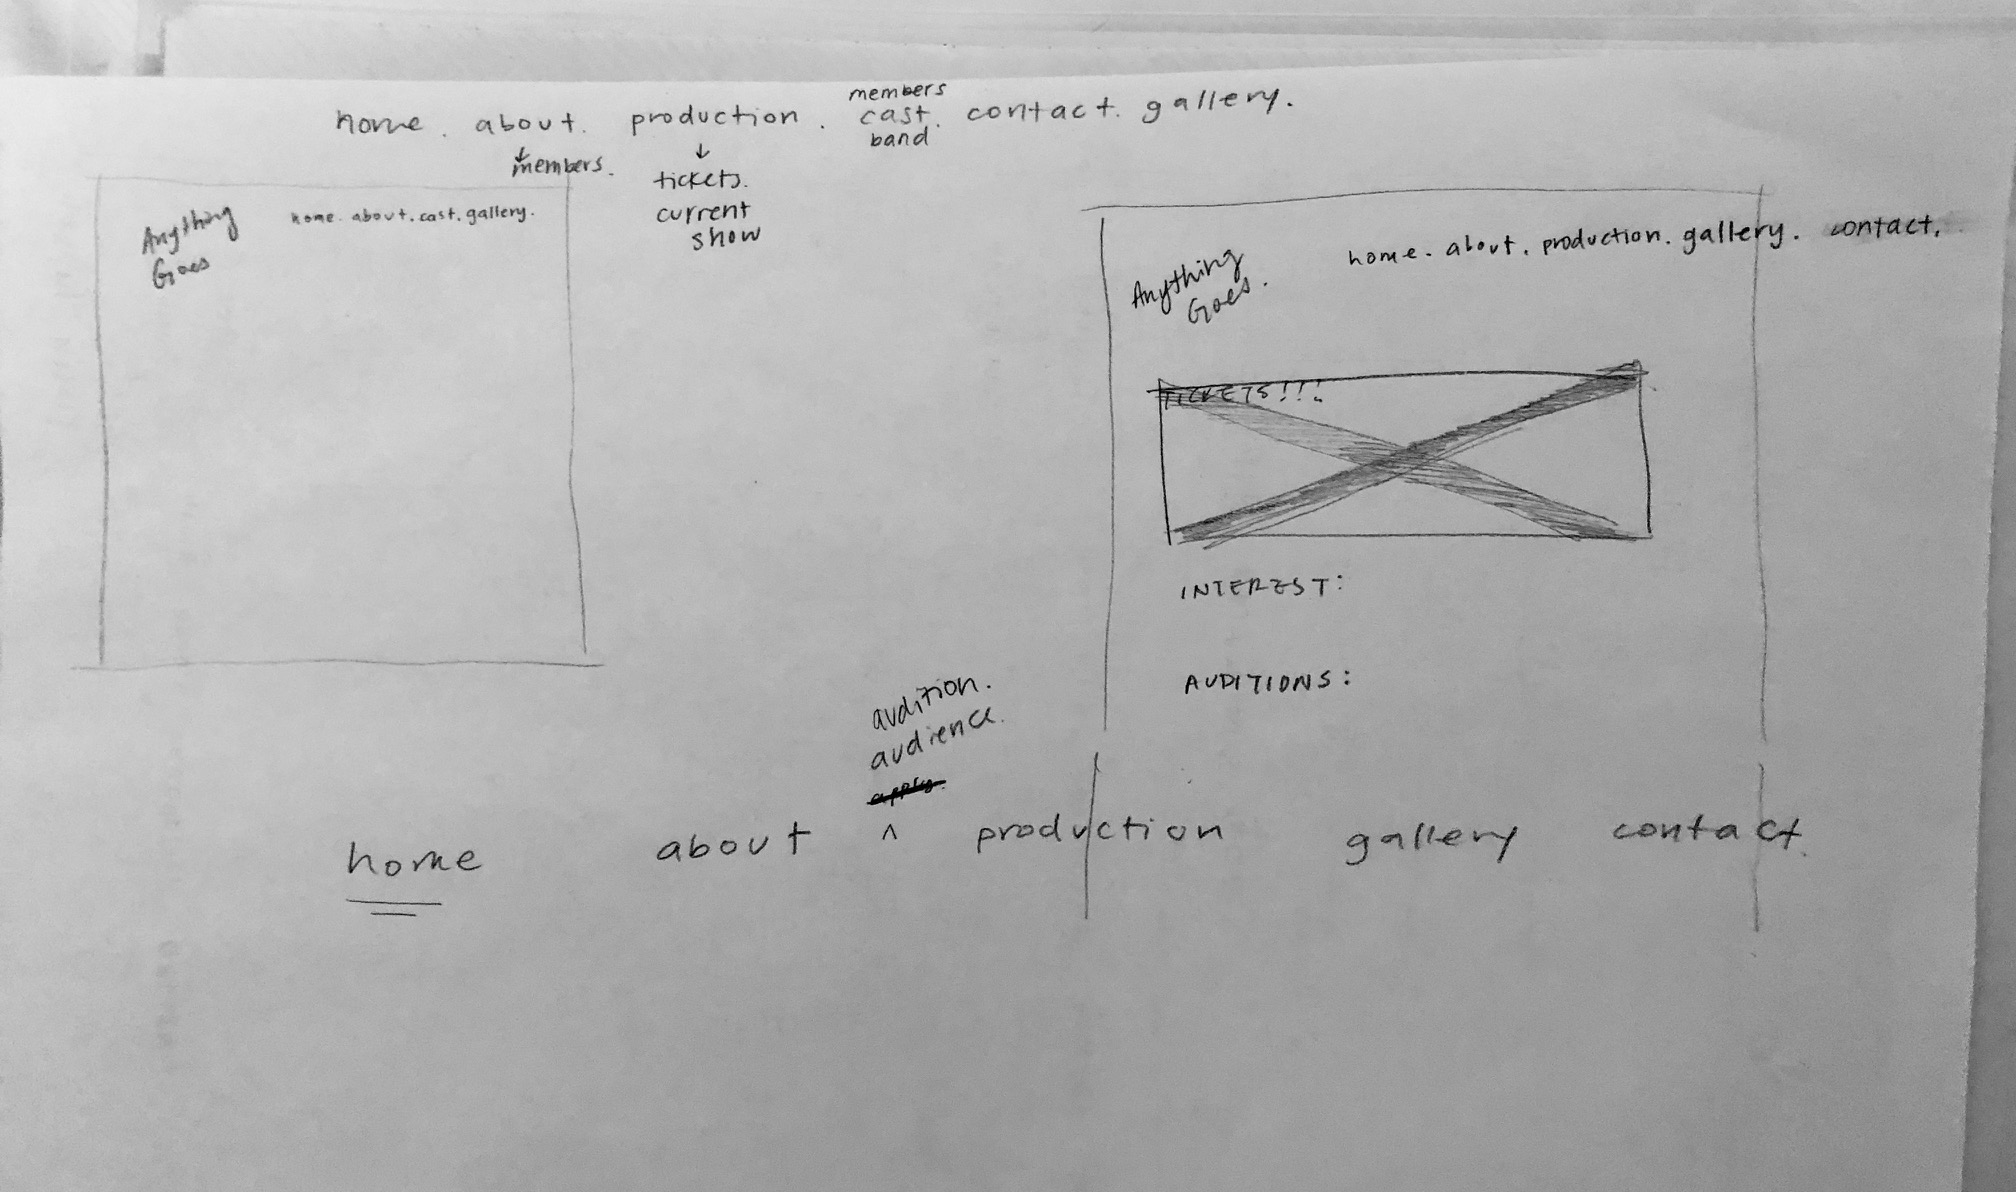 home. about. production. cast. contact. gallery.
members
band
↓
members.
↓
tickets.
current
show
Anything
Goes
home. about. cast. gallery.
Anything
Goes.
home. about. production. gallery. contact.
TICKETS!!!
INTEREST:
AUDITIONS:
audition.
audience.
apply.
^
home about production gallery contact.